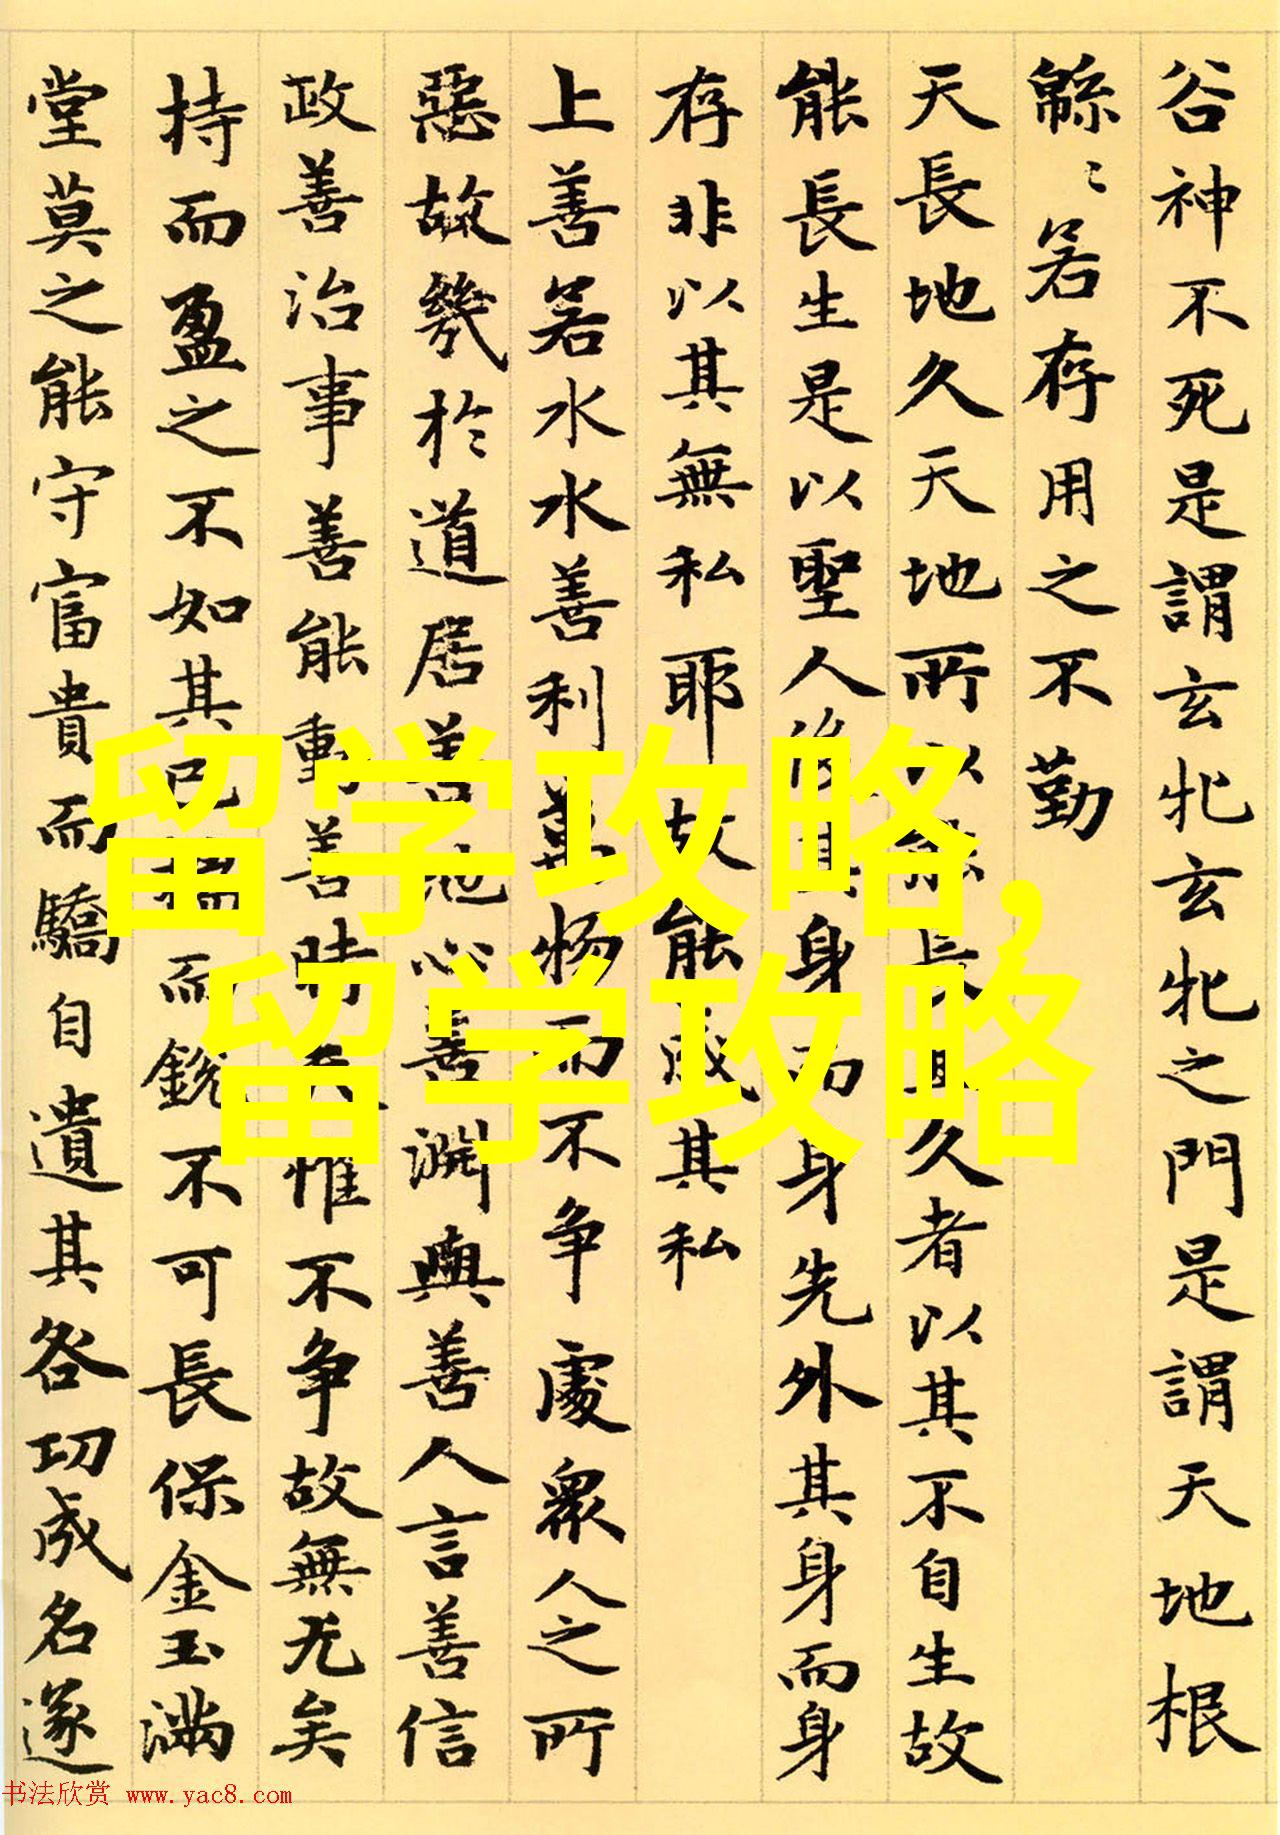 谷神不死是謂玄牝玄牝之門是謂天地根
緜〻若存用之不勤
天長地久天地所以能長且久者以其不自生故
能長生是以聖人後其身而身先外其身而身
存非以其無私耶故能成其私
上善若水水善利萬物而不争處眾人之所
惡故幾於道居善地心善淵與善人言善信
政善治事善能動善時夫惟不争故無尤矣
持而盈之不如其已揣而銳不可長保金玉滿
堂莫之能守富貴而驕自遺其咎功成名遂
留学攻略,
留学攻略
书法欣赏 www.yac8.com